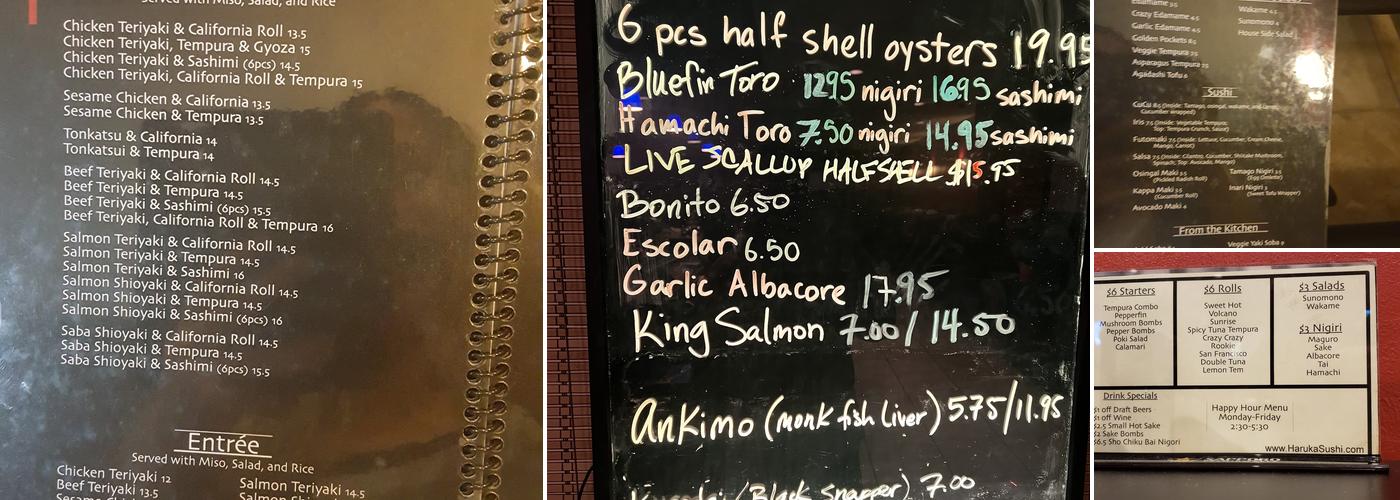 Served with Miso, Salad, and Rice
Chicken Teriyaki & California Roll 13.5
Chicken Teriyaki, Tempura & Gyoza 15
Chicken Teriyaki & Sashimi (6pcs) 14.5
Chicken Teriyaki, California Roll & Tempura 15
Sesame Chicken & California 13.5
Sesame Chicken & Tempura 13.5
Tonkatsu & California 14
Tonkatsui & Tempura 14
Beef Teriyaki & California Roll 14.5
Beef Teriyaki & Tempura 14.5
Beef Teriyaki & Sashimi (6pcs) 15.5
Beef Teriyaki, California Roll & Tempura 16
Salmon Teriyaki & California Roll 14.5
Salmon Teriyaki & Tempura 14.5
Salmon Teriyaki & Sashimi 16
Salmon Shioyaki & California Roll 14.5
Salmon Shioyaki & Tempura 14.5
Salmon Shioyaki & Sashimi (6pcs) 16
Saba Shioyaki & California Roll 14.5
Saba Shioyaki & Tempura 14.5
Saba Shioyaki & Sashimi (6pcs) 15.5
Entrée
Served with Miso, Salad, and Rice
Chicken Teriyaki 12
Beef Teriyaki 13.5
Salmon Teriyaki 14.5
6 pcs half shell oysters 19.95
Bluefin Toro 1295 nigiri 1695 sashimi
Hamachi Toro 7.50 nigiri 14.95 sashimi
LIVE SCALLOP HALFSHELL $15.95
Bonito 6.50
Escolar 6.50
Garlic Albacore 17.95
King Salmon 7.00/14.50
Ankimo (monk fish liver) 5.75/11.95
(Black snapper) 7.00
Edamame
Crazy Edamame
Garlic Edamame
Golden Pockets
Veggie Tempura
Asparagus Tempura
Agadashi Tofu
Wakame
Sunomono
House Side Salad
Sushi
CuCu (Inside: Tamago, osingal, wakame, and
Cucumber wrapped)
Iris (Inside: Vegetable Tempura,
Top: Tempura Crunch, Sauce)
Futomaki (Inside: Lettuce, Cucumber, Cream Cheese,
Mango, Carrot)
Salsa (Inside: Cilantro, Cucumber, Shiitake Mushroom,
Spinach; Top: Avocado, Mango)
Osingal Maki
(Pickled Radish Roll)
Kappa Maki
(Cucumber Roll)
Avocado Maki
Tamago Nigiri
(Egg Omelette)
Inari Nigiri
(Sweet Tofu Wrapper)
From the Kitchen
Veggie Yaki Soba
$6 Starters
Tempura Combo
Pepperfin
Mushroom Bombs
Pepper Bombs
Poki Salad
Calamari
$6 Rolls
Sweet Hot
Volcano
Sunrise
Spicy Tuna Tempura
Crazy Crazy
Rookie
San Francisco
Double Tuna
Lemon Tem
$3 Salads
Sunomono
Wakame
$3 Nigiri
Maguro
Sake
Albacore
Tai
Hamachi
Drink Specials
$1 off Draft Beers
$1 off Wine
$2.5 Small Hot Sake
$2 Sake Bombs
$6.5 Sho Chiku Bai Nigori
Happy Hour Menu
Monday-Friday
2:30-5:30
www.HarukaSushi.com
SAPPORO